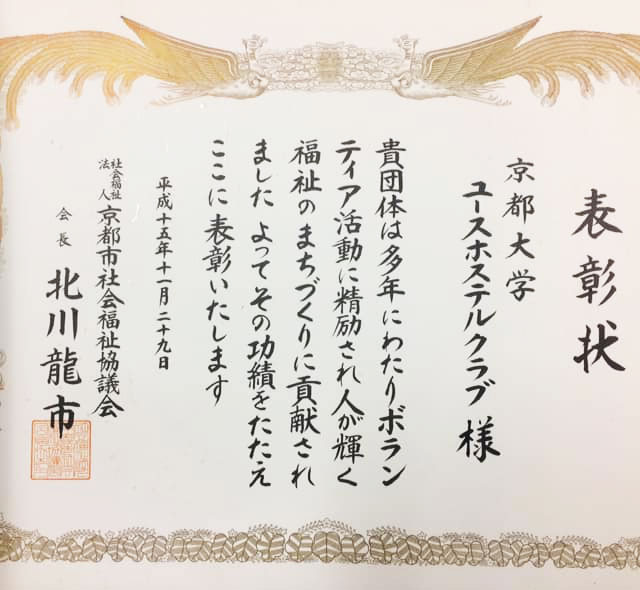 表彰状
京都大学
ユースホステルクラブ様
貴団体は多年にわたりボラン
ティア活動に精励され人が輝く
福祉のまちづくりに貢献され
ました よってその功績をたたえ
ここに表彰いたします
平成十五年十一月二十九日
社会福祉法人 京都市社会福祉協議会
会長 北川龍市